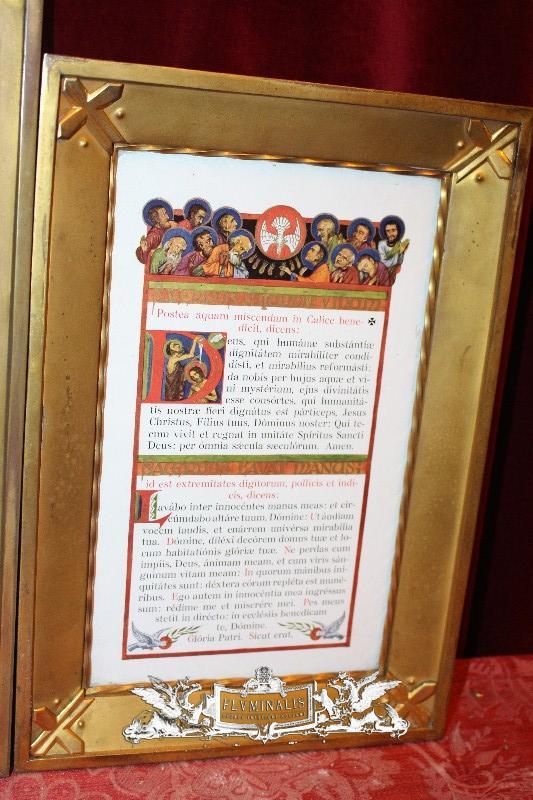 Postea aquam miscendam in Calice bene- ✠
dicit, dicens:
Deus, qui humánæ substántiæ
dignitátem mirabíliter condi-
dísti, et mirabílius reformásti:
da nobis per hujus aquæ et vi-
ni mystérium, ejus divinitátis
esse consórtes, qui humanitá-
tis nostræ fíeri dignátus est párticeps, Jesus
Christus, Fílius tuus, Dóminus noster: Qui te-
cum vivit et regnat in unitáte Spíritus Sancti
Deus: per ómnia sǽcula sæculórum. Amen.
SACERDOS LAVAT MANUS
id est extremitates digitorum, pollicis et indi-
cis, dicens:
Lavábo inter innocéntes manus meas: et cir-
cúmdabo altáre tuum, Dómine: Ut áudiam
vocem laudis, et enárrem univérsa mirabília
tua. Dómine, diléxi decórem domus tuæ et lo-
cum habitatiónis glóriæ tuæ. Ne perdas cum
ímpiis, Deus, ánimam meam, et cum viris sán-
guinum vitam meam: In quorum mánibus ini-
quitátes sunt: déxtera eórum repléta est muné-
ribus. Ego autem in innocéntia mea ingréssus
sum: rédime me et miserére mei. Pes meus
stetit in dirécto: in ecclésiis benedícam
te, Dómine.
Glória Patri. Sicut erat.
FLVMINALIS